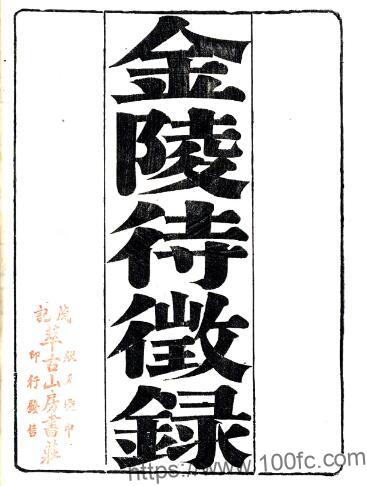 金陵待徵録
記
萃古山房書莊
印行發售
https://www.100fc.com